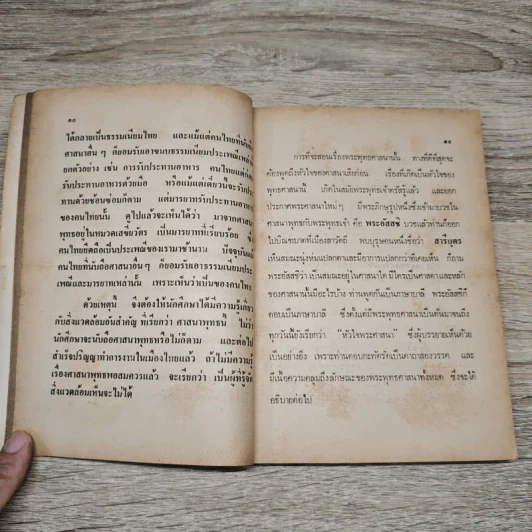 ๑๐
ได้กลายเป็นธรรมเนียมไทย และแม้แต่คนไทยที่นับถือ
ศาสนาอื่น ๆ ก็ยอมรับเอาขนบธรรมเนียมประเพณีเหล่า
ยกตัวอย่าง เช่น การรับประทานอาหาร คนไทยแต่ก่อน
รับประทานอาหารด้วยมือ หรือแม้แต่เดี๋ยวนี้จะรับประ
ทานด้วยช้อนซ่อมก็ตาม แต่มารยาทในการรับประทาน
ของคนไทยนั้น ดูไปแล้วจะเห็นได้ว่า มาจากศาสนา
พุทธอยู่ในหมวดเสขิยวัตร เป็นมารยาทที่เรียบร้อย ซึ่ง
คนไทยยึดถือเป็นประเพณีของเรามาช้านาน ปัจจุบันแม้
คนไทยที่นับถือศาสนาอื่น ๆ ก็ยอมรับเอาธรรมเนียมประ
เพณีและมารยาทเหล่านั้น เพราะเห็นว่าเป็นของคนไทย
ด้วยเหตุนี้ จึงต้องให้นักศึกษาได้มีความรู้เกี่ยว
กับสิ่งแวดล้อมอันสำคัญ ที่เรียกว่า ศาสนาพุทธนั้น ไม่ว่า
นักศึกษาจะนับถือศาสนาพุทธหรือไม่ก็ตาม และต่อไป
สำเร็จปริญญาทำการงานในเมืองไทยแล้ว ถ้าไม่มีความรู้
เรื่องศาสนาพุทธพอสมควรแล้ว จะเรียกว่า เป็นผู้ที่รู้จัก
สิ่งแวดล้อมเห็นจะไม่ได้
๑๑
การที่จะสอนเรื่องพระพุทธศาสนานั้น ทางที่ดีที่สุดจะ
ต้องพูดถึงหัวใจของศาสนาเสียก่อน เรื่องที่เกิดเป็นหัวใจของ
พุทธศาสนานี้ เกิดในสมัยพระพุทธเจ้าตรัสรู้แล้ว และออก
ประกาศพระศาสนาใหม่ ๆ มีพระภิกษุรูปหนึ่งซึ่งเข้ามาบวชใน
ศาสนาพุทธกับพระพุทธเจ้า คือ พระอัสสชิ บวชแล้วท่านก็ออก
ไปบิณฑบาตที่เมืองสาวัตถี พบบุรุษคนหนึ่งชื่อว่า สารีบุตร
เห็นสมณะนุ่งห่มแปลกตาและมีอาการแปลกกว่าที่เคยเห็น ก็ถาม
พระอัสสชิว่า เป็นสมณะอยู่ในศาสนาใด มีใครเป็นศาสดาและหลัก
ของศาสนานั้นมีอะไรบ้าง ท่านพูดกันเป็นภาษาบาลี พระอัสสชิก็
ตอบเป็นภาษาบาลี ซึ่งตั้งแต่มีพระพุทธศาสนาเป็นต้นมาจนถึง
ทุกวันนี้ยังเรียกว่า "หัวใจพระศาสนา" ซึ่งผู้บรรยายเห็นด้วย
เป็นอย่างยิ่ง เพราะท่านตอบกะทัดรัดเป็นคาถาสองวรรค และ
มีเนื้อความคลุมถึงลักษณะของพระพุทธศาสนาทั้งหมด ซึ่งจะได้
อธิบายต่อไป